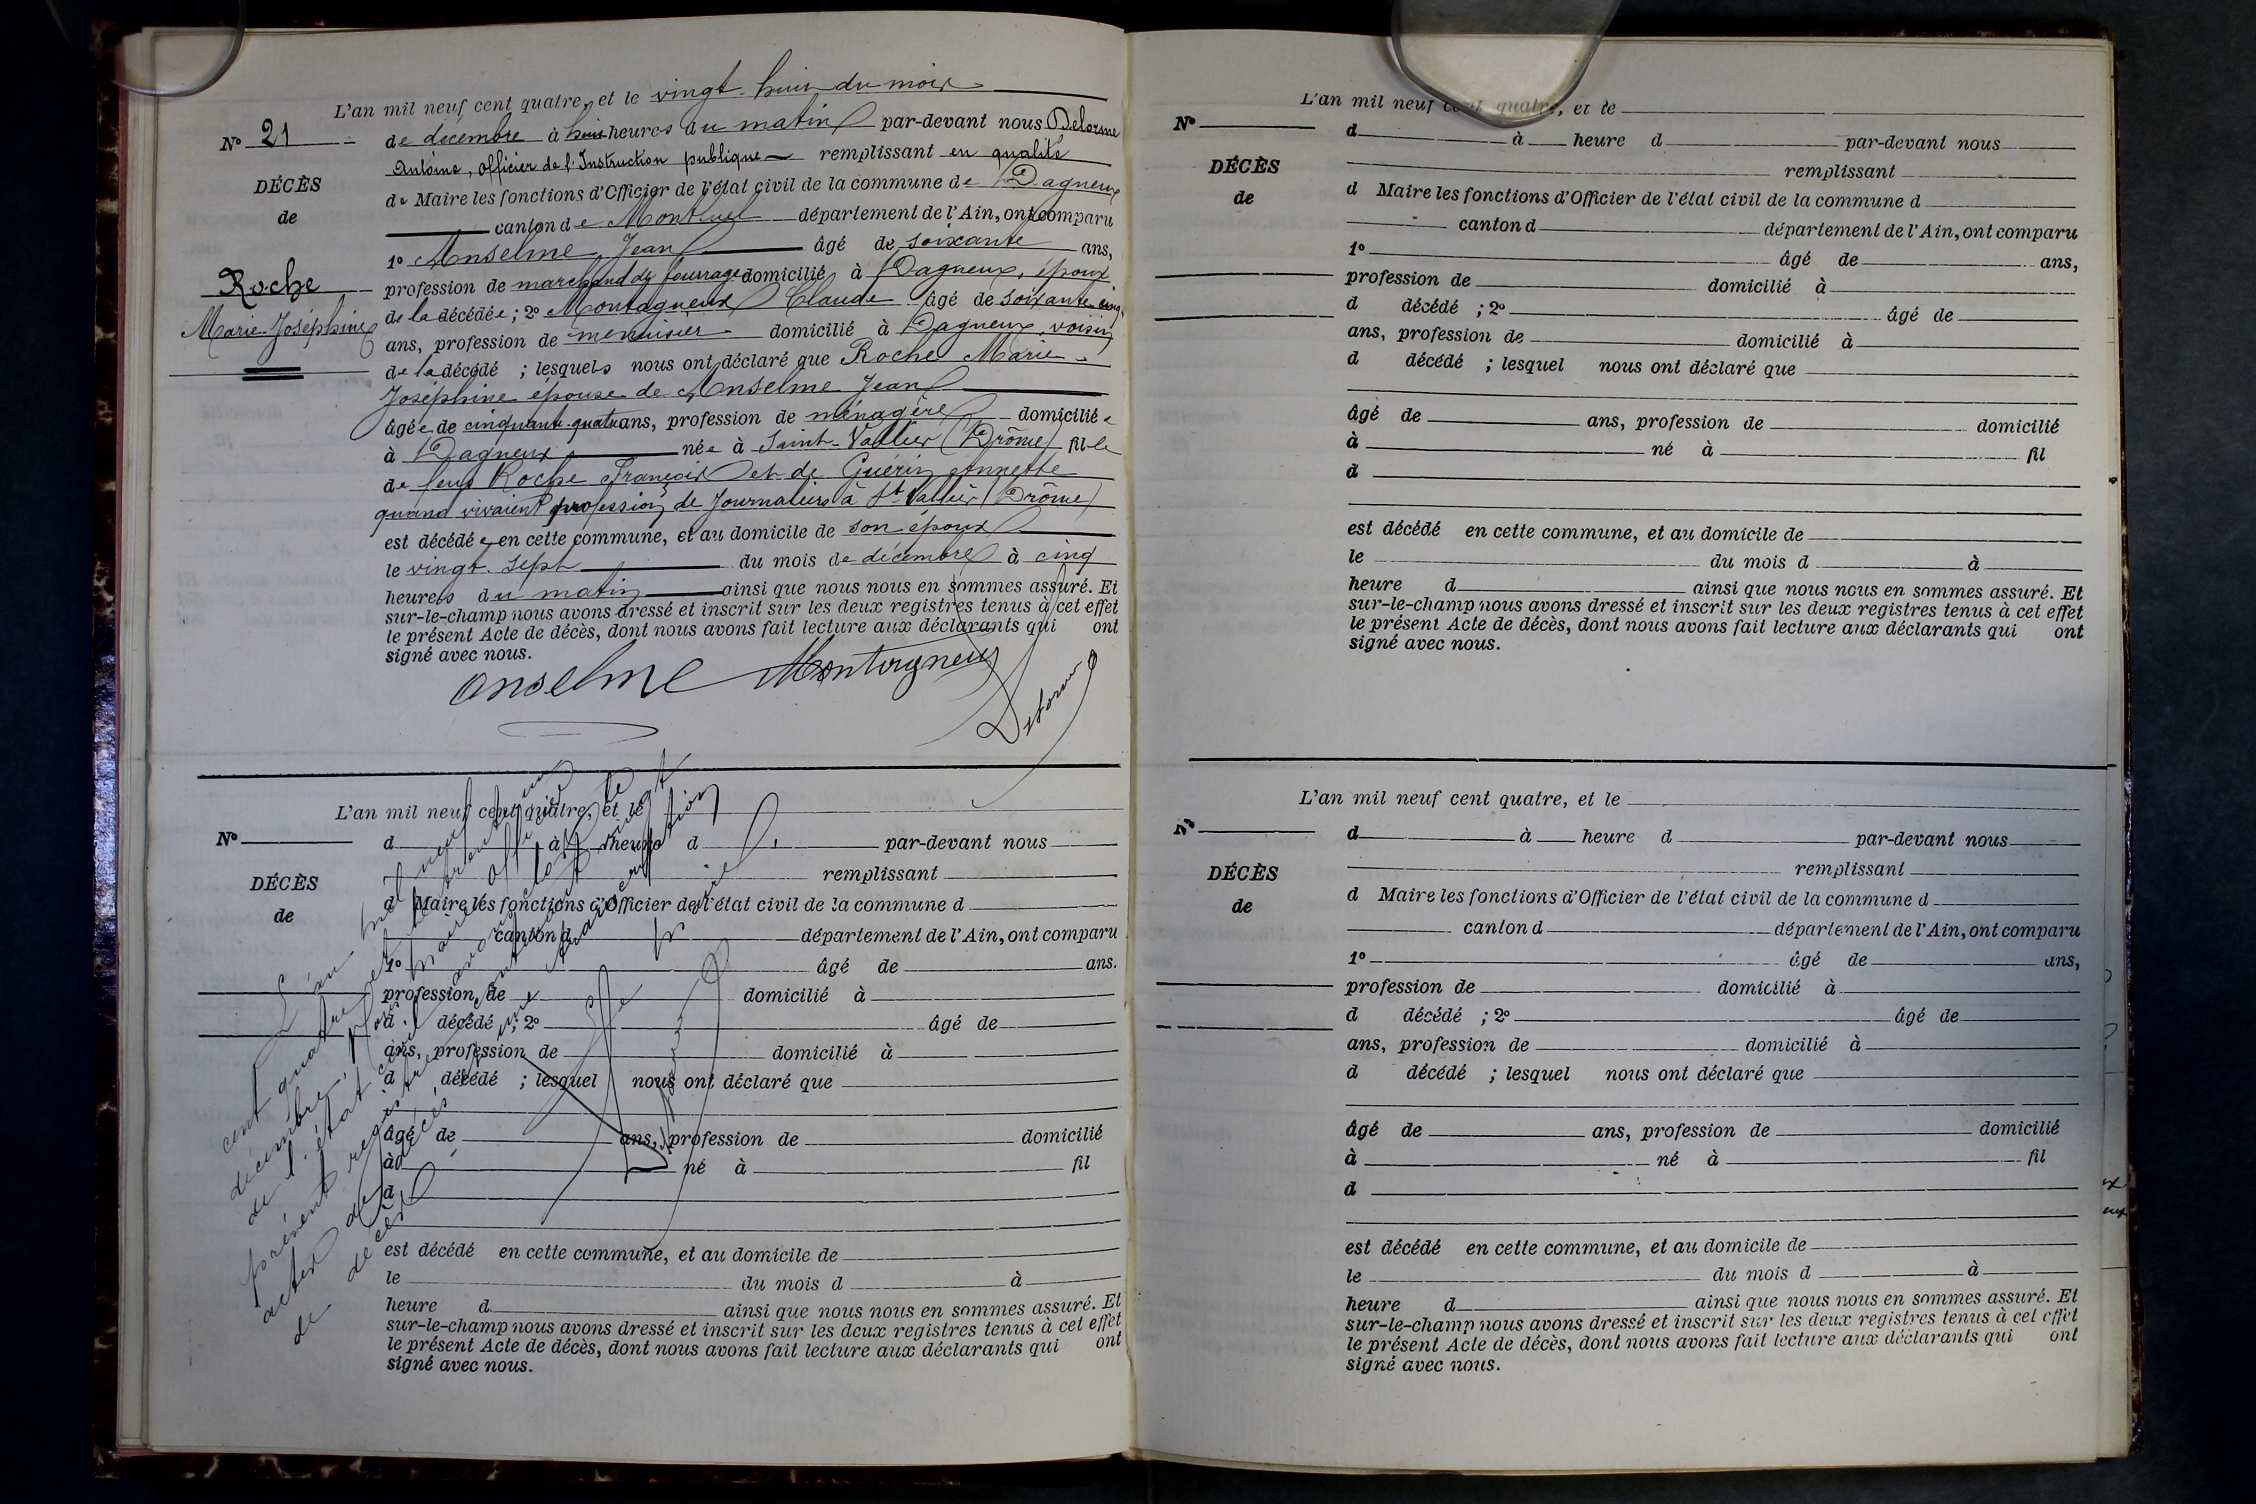 L'an mil neuf cent quatre, et le vingt-huit du mois
N° 21
de décembre à huit heures du matin par-devant nous Delorme
Antoine, officier de l'Instruction publique remplissant en qualité
DÉCÈS
de Maire les fonctions d'Officier de l'état civil de la commune de Dagneux
de
canton de Montluel département de l'Ain, ont comparu
1° Anselme Jean âgé de soixante ans,
Roche
profession de marchand de fourrage domicilié à Dagneux, époux
Marie-Joséphine
de la décédée ; 2° Montagneux Claude âgé de soixante cinq
ans, profession de menuisier domicilié à Dagneux, voisin
de la décédé ; lesquels nous ont déclaré que Roche Marie-
Joséphine épouse de Anselme Jean
âgée de cinquante-quatre ans, profession de ménagère domiciliée
à Dagneux née à Saint-Vallier (Drôme) fille
de feus Roche François et de Guérin Annette
quand vivaient profession de Journaliers à St Vallier (Drôme)
est décédée en cette commune, et au domicile de son époux
le vingt-sept du mois de décembre à cinq
heures du matin ainsi que nous nous en sommes assuré. Et
sur-le-champ nous avons dressé et inscrit sur les deux registres tenus à cet effet
le présent Acte de décès, dont nous avons fait lecture aux déclarants qui ont
signé avec nous.
Anselme Montagneux
Delorme
L'an mil neuf cent quatre, et le
N°
d à heure d par-devant nous
remplissant
DÉCÈS
d Maire les fonctions d'Officier de l'état civil de la commune d
de
canton d département de l'Ain, ont comparu
1° âgé de ans.
profession de domicilié à
d décédé ; 2° âgé de
ans, profession de domicilié à
d décédé ; lesquel nous ont déclaré que
âgé de ans, profession de domicilié
à né à fil
d
est décédé en cette commune, et au domicile de
le du mois d à
heure d ainsi que nous nous en sommes assuré. Et
sur-le-champ nous avons dressé et inscrit sur les deux registres tenus à cet effet
le présent Acte de décès, dont nous avons fait lecture aux déclarants qui ont
signé avec nous.
L'an mil neuf
cent quatre et le trente un
décembre, Nous maire officier
de l'état civil avons clos le
présent registre contenant vingt
actes de décès et une transcription
de décès
Le Maire
Delorme
L'an mil neuf cent quatre, et le
N°
d à heure d par-devant nous
remplissant
DÉCÈS
d Maire les fonctions d'Officier de l'état civil de la commune d
de
canton d département de l'Ain, ont comparu
1° âgé de ans,
profession de domicilié à
d décédé ; 2° âgé de
ans, profession de domicilié à
d décédé ; lesquel nous ont déclaré que
âgé de ans, profession de domicilié
à né à fil
d
est décédé en cette commune, et au domicile de
le du mois d à
heure d ainsi que nous nous en sommes assuré. Et
sur-le-champ nous avons dressé et inscrit sur les deux registres tenus à cet effet
le présent Acte de décès, dont nous avons fait lecture aux déclarants qui ont
signé avec nous.
L'an mil neuf cent quatre, et le
N°
d à heure d par-devant nous
remplissant
DÉCÈS
d Maire les fonctions d'Officier de l'état civil de la commune d
de
canton d département de l'Ain, ont comparu
1° âgé de ans,
profession de domicilié à
d décédé ; 2° âgé de
ans, profession de domicilié à
d décédé ; lesquel nous ont déclaré que
âgé de ans, profession de domicilié
à né à fil
d
est décédé en cette commune, et au domicile de
le du mois d à
heure d ainsi que nous nous en sommes assuré. Et
sur-le-champ nous avons dressé et inscrit sur les deux registres tenus à cet effet
le présent Acte de décès, dont nous avons fait lecture aux déclarants qui ont
signé avec nous.